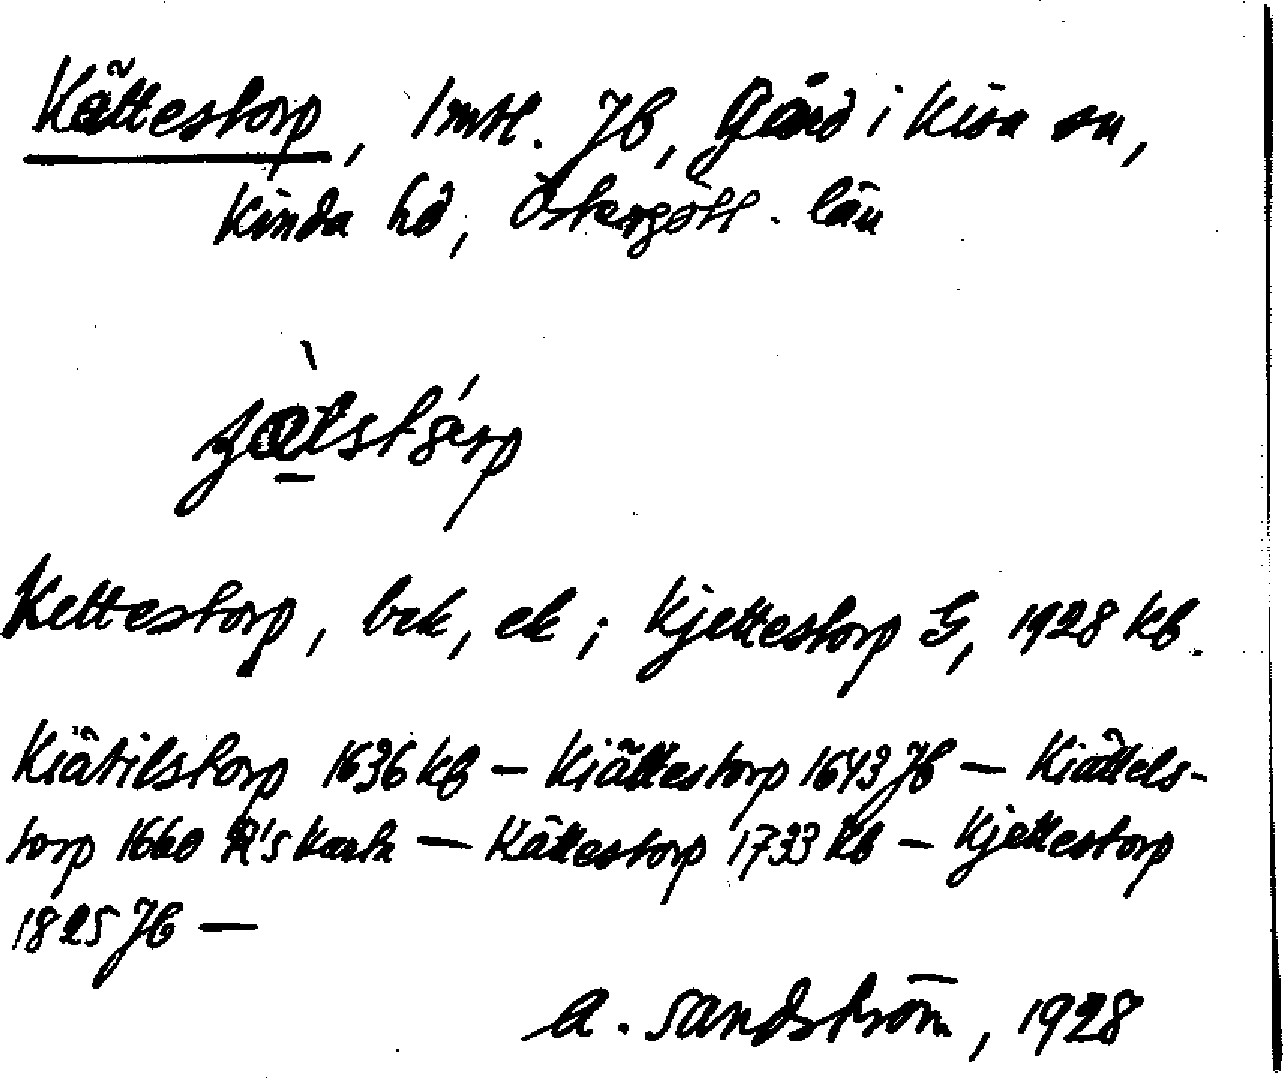 Kättestorp, 1 mtl. Jb, Gård i Kisa sn,
Kinda hd, Östergötl. län
Kettestorp, bek, ek; Kjettestorp G, 1928 kb.
Kiätilstorp 1636 kb — Kiättestorp 1643 Jb — Kiättels-
torp 1660 R's karta — Kättestorp 1733 kb — Kjettestorp
1825 Jb —
A. Sandström, 1928